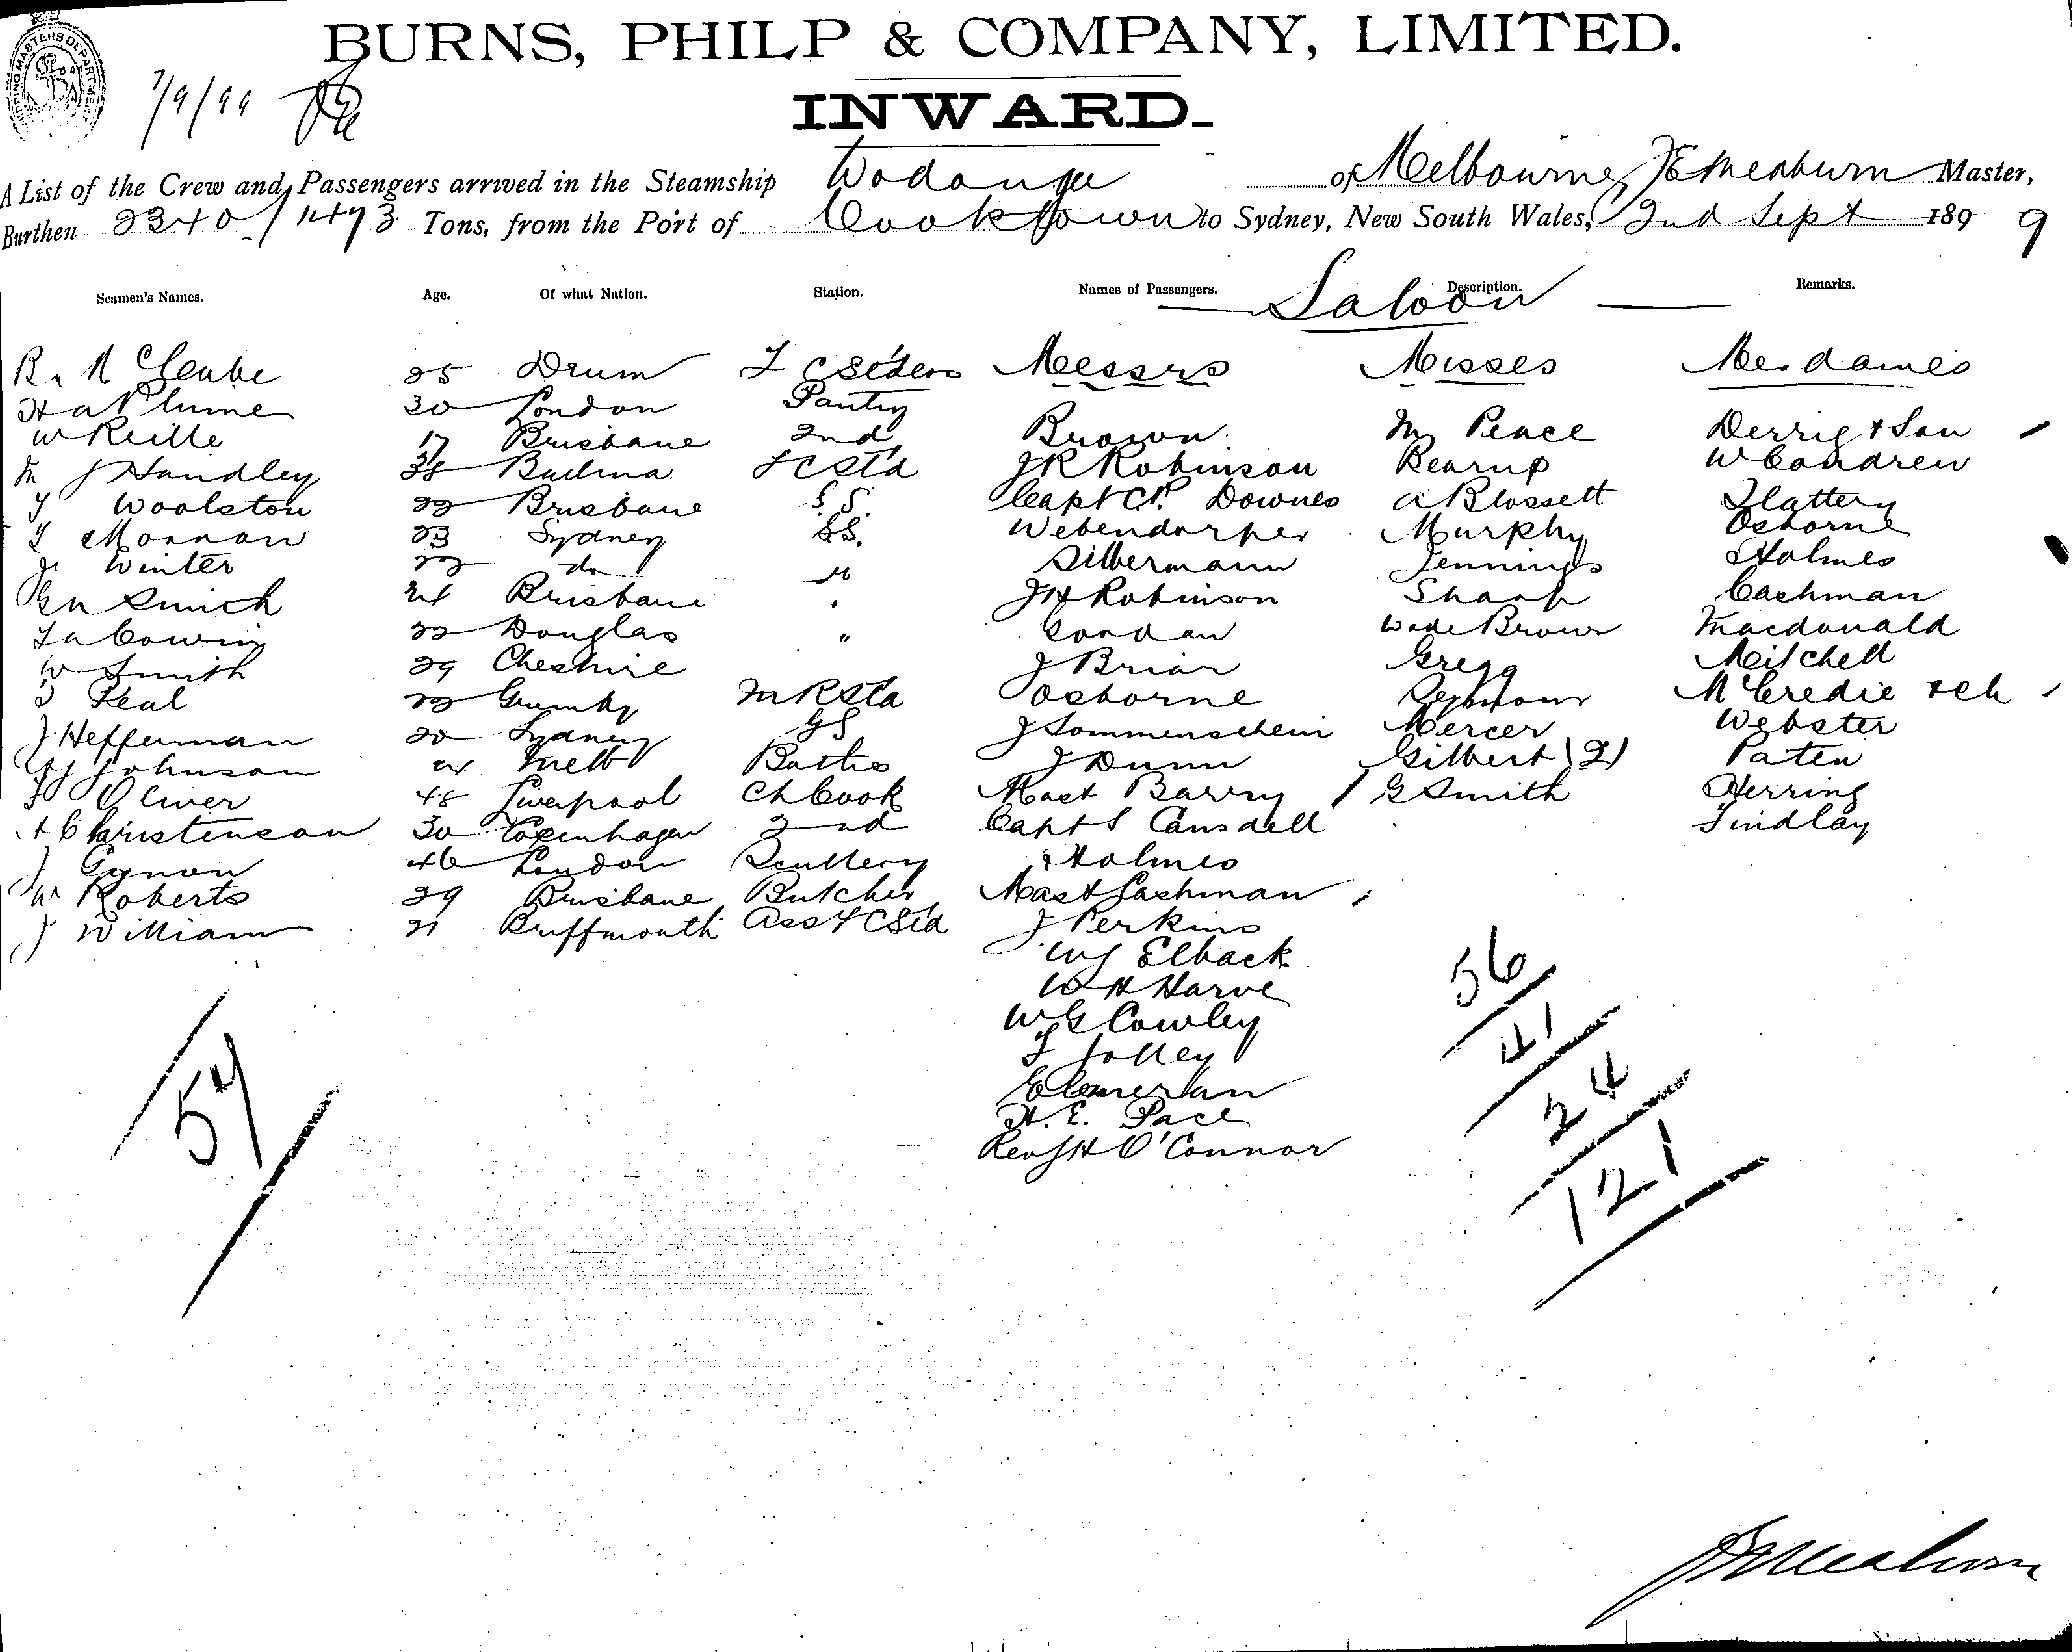 BURNS, PHILP & COMPANY, LIMITED.
7/9/99
INWARD.
A List of the Crew and Passengers arrived in the Steamship Wodonga of Melbourne, Master,
Burthen 2340/1473 Tons, from the Port of Cooktown to Sydney, New South Wales, 2nd Sept 1899
Seamen's Names. Age. Of what Nation. Station. Names of Passengers. Description. Remarks.
Saloon
R. 25 Drum Messrs Misses Mesdames
Plume 30 London Pantry
W 17 Brisbane 2nd Brown M Peace Derrig & Son
M J Handley 38 J R Robinson Rearup W Condren
Woolston 22 Brisbane S.S. Capt C P Downes A Blossett Slattery
23 Sydney S.S. Webendorfer Murphy Osborne
Winter 22 do " Silbermann Jennings Holmes
Smith 24 Brisbane " J H Robinson Sharp Cashman
Cowin 22 Douglas " Gordan Wade Brown Macdonald
W Smith 29 Cheshire J Brian Gregg Mitchell
Teal 22 M R Std Osborne McCredie & ch
J Heffernan 20 Sydney G S J Sommenschein Mercer Webster
Johnson 21 Melb J Dunn Gilbert (2) Paten
Oliver 48 Liverpool Ch Cook Mast Barry G Smith Herring
Christenson 30 Copenhagen 2nd Capt S Cansdell Findlay
J 46 London Scullery Holmes
W Roberts 29 Brisbane Butcher Mast Cashman
J William 21 Ass F C Std J Perkins
W J Elback
W H Harve
W G Cowley
F Jolley
H. E. Pace
Rev J H O'Connor
57
56
41
24
121